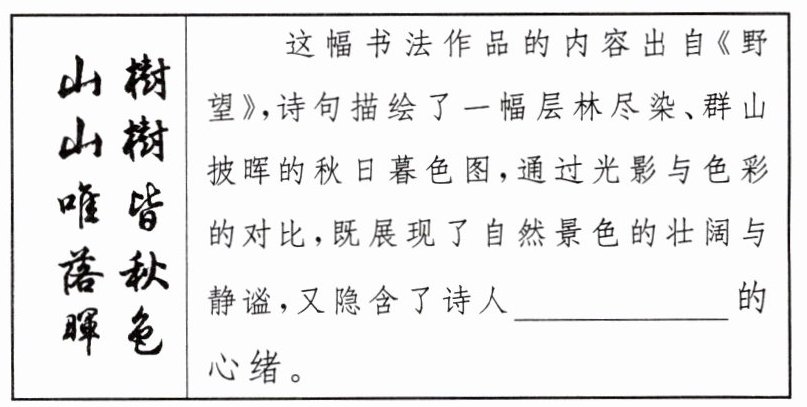 樹樹皆秋色
山山唯落暉
这幅书法作品的内容出自《野
望》,诗句描绘了一幅层林尽染、群山
披晖的秋日暮色图,通过光影与色彩
的对比,既展现了自然景色的壮阔与
静谧,又隐含了诗人____________的
心绪。